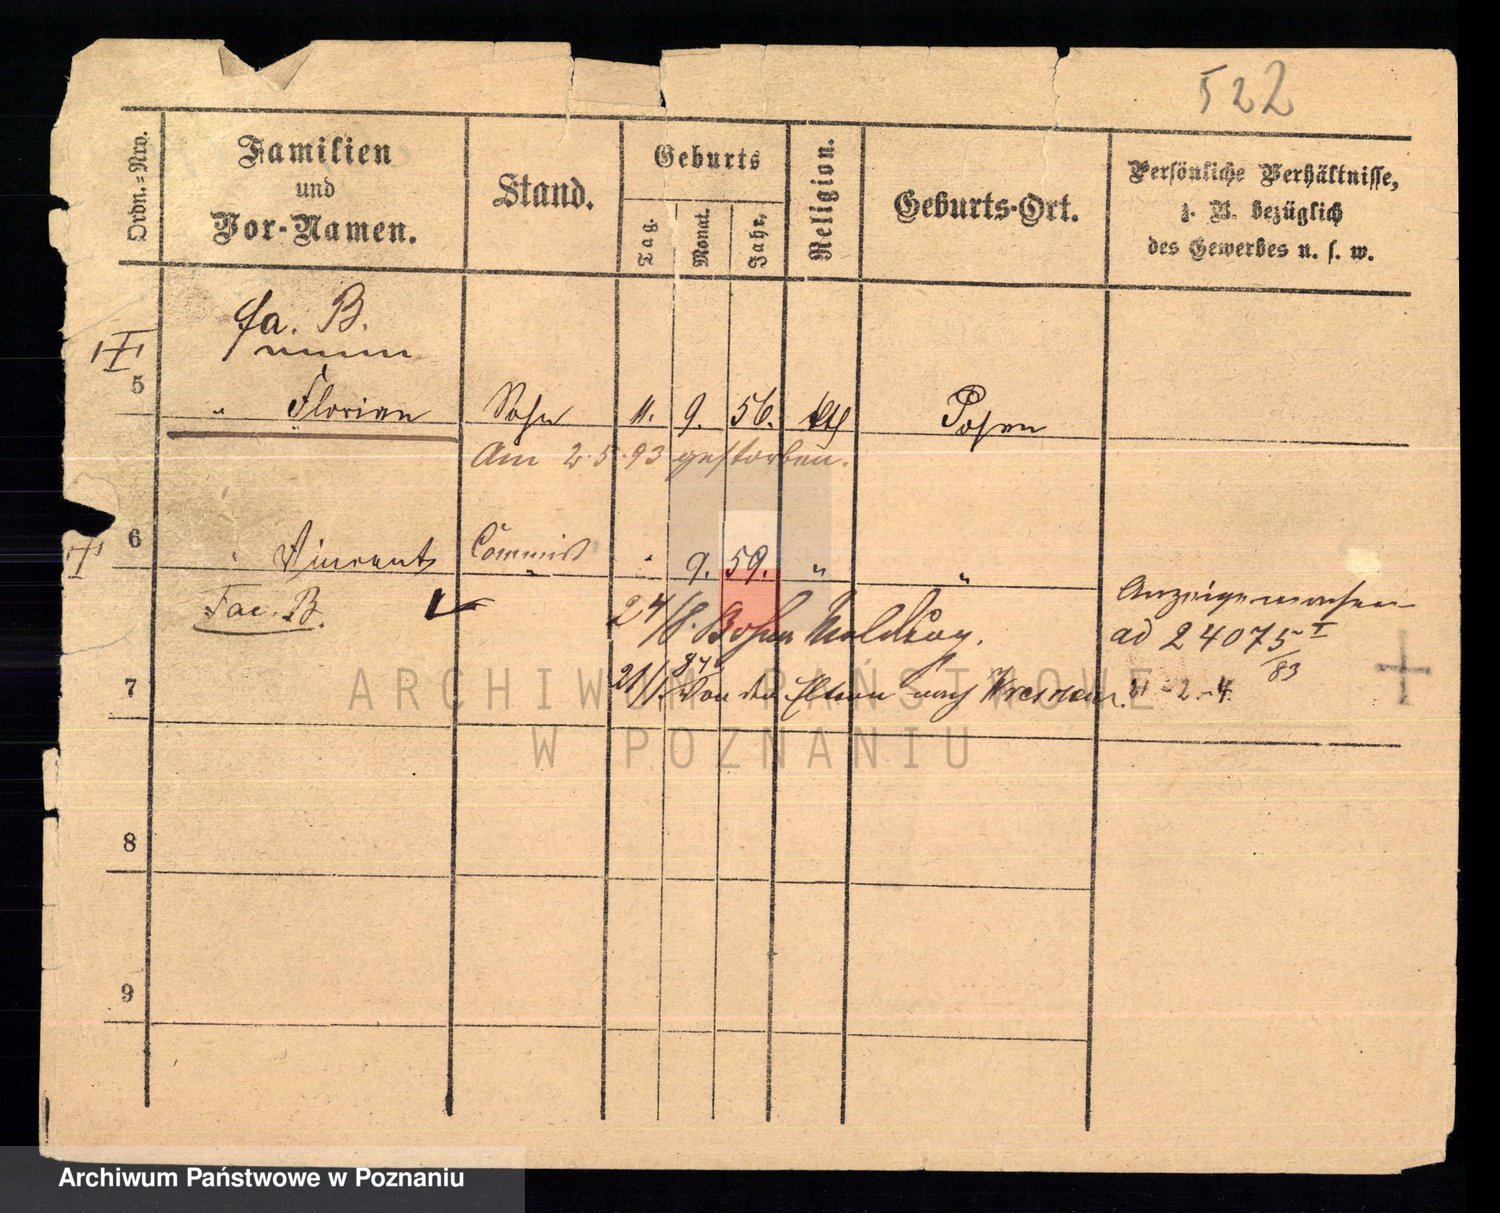 522
Ordn.=Nro.
Familien
und
Vor-Namen.
Stand.
Geburts
Tag.
Monat.
Jahr.
Religion.
Geburts-Ort.
Persönliche Verhältnisse,
z. B. bezüglich
des Gewerbes u. s. w.
fa. B.
5
" Florian Sohn 11. 9. 56. kth Posen
Am 2.5.93 gestorben.
6
" Vincent Commis " 9. 59. " "
Fac. B.
24/8.
ad 24075 I
/83
7
21/1. 84 Von den Eltern nach
VI-2-4
8
9
ARCHIWUM PAŃSTWOWE
W POZNANIU
Archiwum Państwowe w Poznaniu